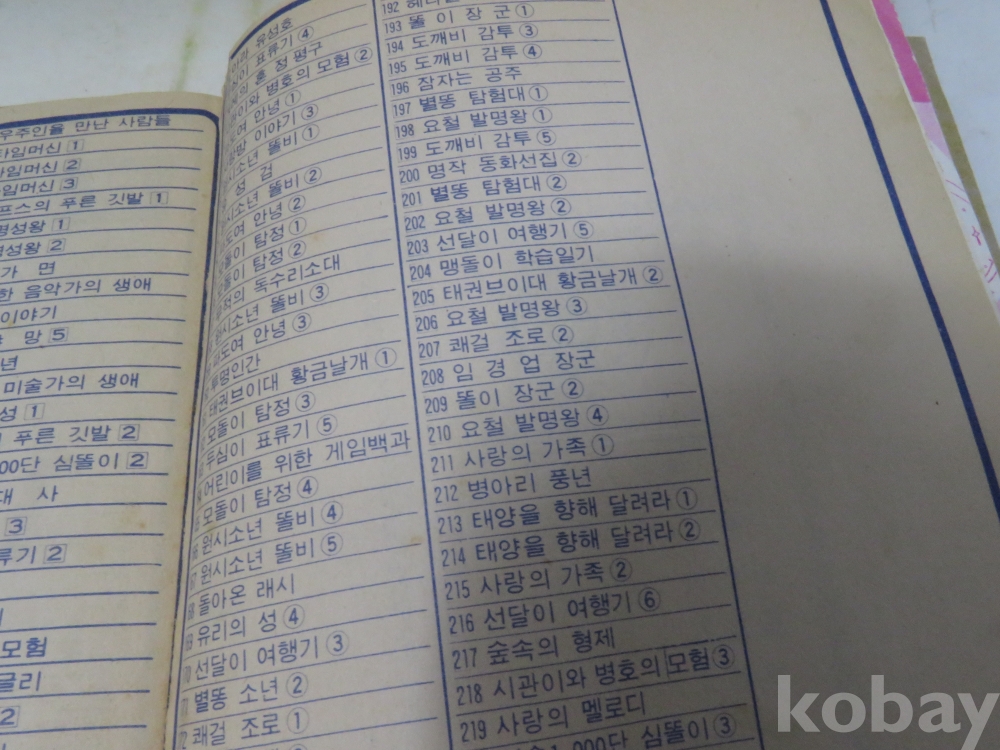 우주인을 만난 사람들
타임머신 1
타임머신 2
타임머신 3
푸른 깃발 1
명성왕 1
명성왕 2
가 면
음악가의 생애
이야기
망 5
미술가의 생애
성 1
푸른 깃발 2
00단 심똘이 2
대 사
3
류기 2
모험
글리
2
유성호
표류기 ④
홍 정 평 구
병호의 모험 ②
안녕 ①
이야기 ③
똘비 ①
검
원시소년 똘비 ②
파도여 안녕 ②
모돌이 탐정 ①
모돌이 탐정 ②
독수리소대
원시소년 똘비 ③
파도여 안녕 ③
투명인간
태권브이대 황금날개 ①
모돌이 탐정 ③
두심이 표류기 ⑤
어린이를 위한 게임백과
모돌이 탐정 ④
원시소년 똘비 ④
원시소년 똘비 ⑤
돌아온 래시
유리의 성 ④
선달이 여행기 ③
별똥 소년 ②
쾌걸 조로 ①
192
193 똘 이 장 군 ①
194 도깨비 감투 ③
195 도깨비 감투 ④
196 잠자는 공주
197 별똥 탐험대 ①
198 요철 발명왕 ①
199 도깨비 감투 ⑤
200 명작 동화선집 ②
201 별똥 탐험대 ②
202 요철 발명왕 ②
203 선달이 여행기 ⑤
204 맹돌이 학습일기
205 태권브이대 황금날개 ②
206 요철 발명왕 ③
207 쾌걸 조로 ②
208 임 경 업 장군
209 똘이 장군 ②
210 요철 발명왕 ④
211 사랑의 가족 ①
212 병아리 풍년
213 태양을 향해 달려라 ①
214 태양을 향해 달려라 ②
215 사랑의 가족 ②
216 선달이 여행기 ⑥
217 숲속의 형제
218 시관이와 병호의 모험 ③
219 사랑의 멜로디
000단 심똘이 ③
kobay